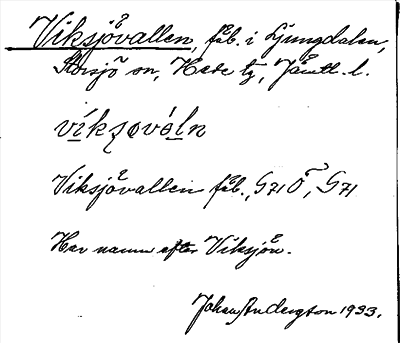 Viksjövallen, fäb. i Ljungdalen,
Storsjö sn, Hede tg, Jämtl. l.
Viksjövallen fäb., G71 Ö, G71
Har namn efter Viksjön.
Johan Anderson 1933.